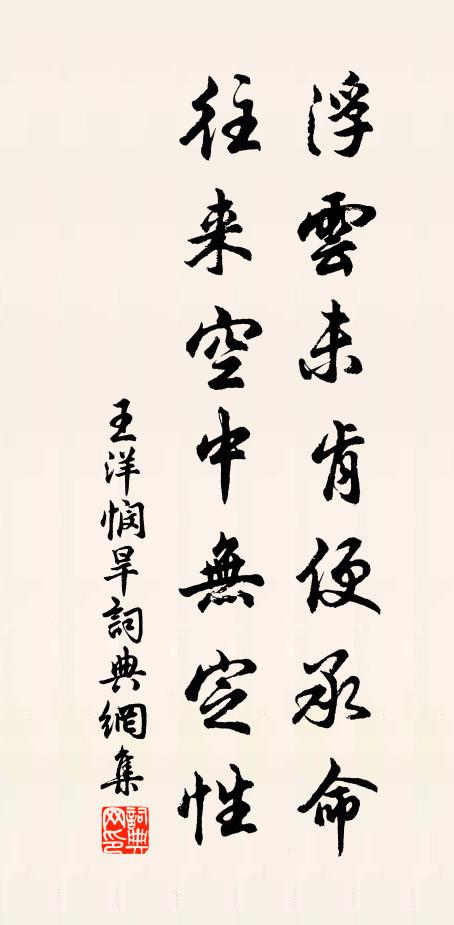 浮雲未肯便承命
往来空中無定性
王洋憫旱詞典網集
詞典網印